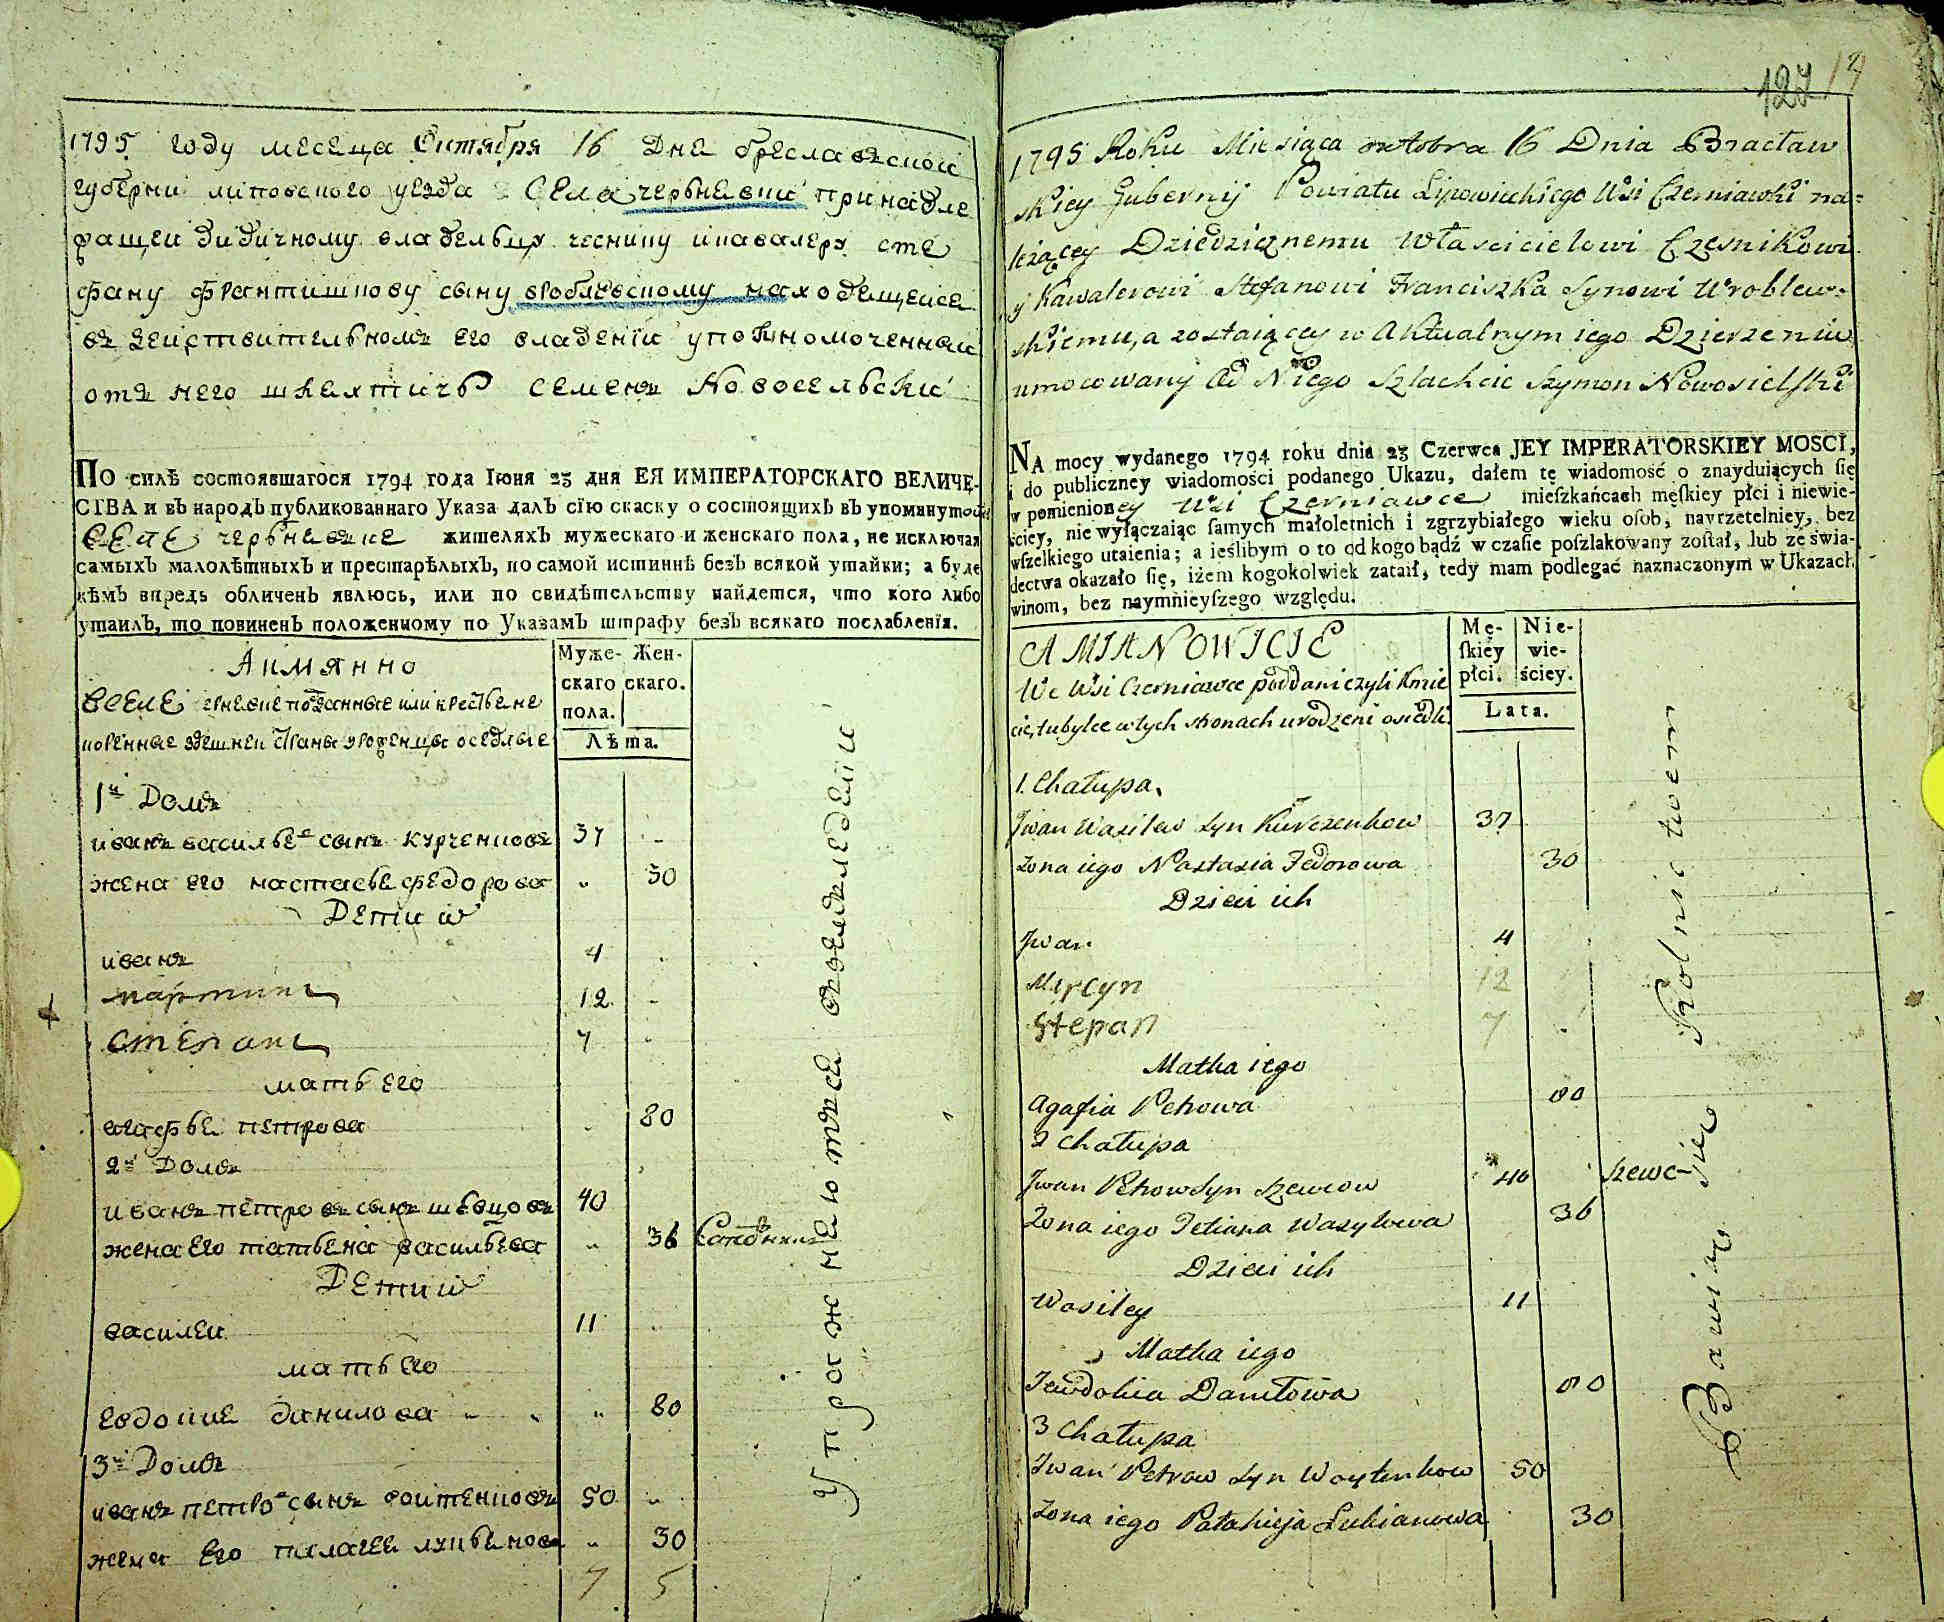 1795 году месеца Октября 16 дне бреславской
губерни липовского уезда села чернявки принадле
жащеи дидичному владельцу чеснику и кавалеру сте
фану францишкову сыну вроблевскому находещейсе
въ действительномъ его владении уполномоченный
отъ него шляхтичъ семенъ Новосельски
ПО силѣ состоявшагося 1794 года Іюня 23 дня ЕЯ ИМПЕРАТОРСКАГО ВЕЛИЧЕ-
СТВА и въ народъ публикованнаго Указа далъ сїю скаску о состоящихъ въ упомянутой
селе чернявке жителяхъ мужескаго и женскаго пола, не исключая
самыхъ малолѣтныхъ и престарѣлыхъ, по самой истиннѣ безъ всякой утайки; а буде
кѣмъ впредь обличенъ явлюсь, или по свидѣтельству найдется, что кого либо
утаилъ, то повиненъ положенному по Указамъ штрафу безъ всякаго послабленїя.
Аимянно
Муже- Жен-
скаго скаго.
пола.
Лѣта.
вселе подданные или крестьяне
здешнеи страны уроженцы оседлые
1й Домъ
иванъ василье сынъ курченковъ 37 -
жена его настасье федорова „ 30
Дети и
иванъ 4
мартинъ 12 -
степанъ 7
мать его
агафье петрова 80
2й Домъ
иванъ петровъ сынъ шевцовъ 40
жена его татьена васильева „ 36
Дети и
василеи 11
мать его
евдокие данилова „ 80
3й Домъ
иванъ петро сынъ воитенковъ 50 „
жена его палагее лукьенова „ 30
7 5
упражнеютсе въземледелии
127
1795 Roku Miesiąca oktobra 16 Dnia Bracław
skiey Gubernij Powiatu Lipowieckiego Wsi Czerniawki na=
leżącey Dziedzicznemu Właścicielowi Czesnikowi
y Kawalerowi Stefanowi Franciszka Synowi Wroblew=
skiemu, a zostaiącey w Aktualnym iego Dzierzeniu
umocowany Od Niego Szlachcic Szymon Nowosielski
NA mocy wydanego 1794 roku dnia 23 Czerwca JEY IMPERATORSKIEY MOSCI,
i do publiczney wiadomości podanego Ukazu, dałem tę wiadomość o znayduiących się
w pomienioney Wsi Czerniawce mieszkańcach męskiey płci i niewie-
ściey, nie wyłączaiąc samych małoletnich i zgrzybiałego wieku osob, nayrzetelniey, bez
wszelkiego utaienia; a ieślibym o to od kogo bądź w czasie poszlakowany został, lub ze świa-
dectwa okazało się, iżem kogokolwiek zataił, tedy mam podlegać naznaczonym w Ukazach
winom, bez naymnieyszego względu.
A MIANOWICIE
Mę- Nie-
skiey wie-
płci. ściey.
Lata.
We Wsi Czerniawce poddani czyli Kmie
cie, tubylce w tych stronach urodzeni osiedli
1. Chałupa.
Jwan Wasilew Syn Kurczenkow 37
Zona iego Nastasia Fedorowa 30
Dzieci ich
Jwan 4
Marcyn 12
Stepan 7
Matka iego
Agafia Petrowa 80
2 Chałupa
Jwan Petrow Syn Szewcow 40 Szewc
Zona iego Tetiana Wasylowa 36
Dzieci ich
Wasiley 11
Matka iego
Jewdokia Daniłowa 80
3 Chałupa
Jwan Petrow Syn Woytenkow 50
Zona iego Pałahieja Lukianowa 30
Bawią się Rolnictwem